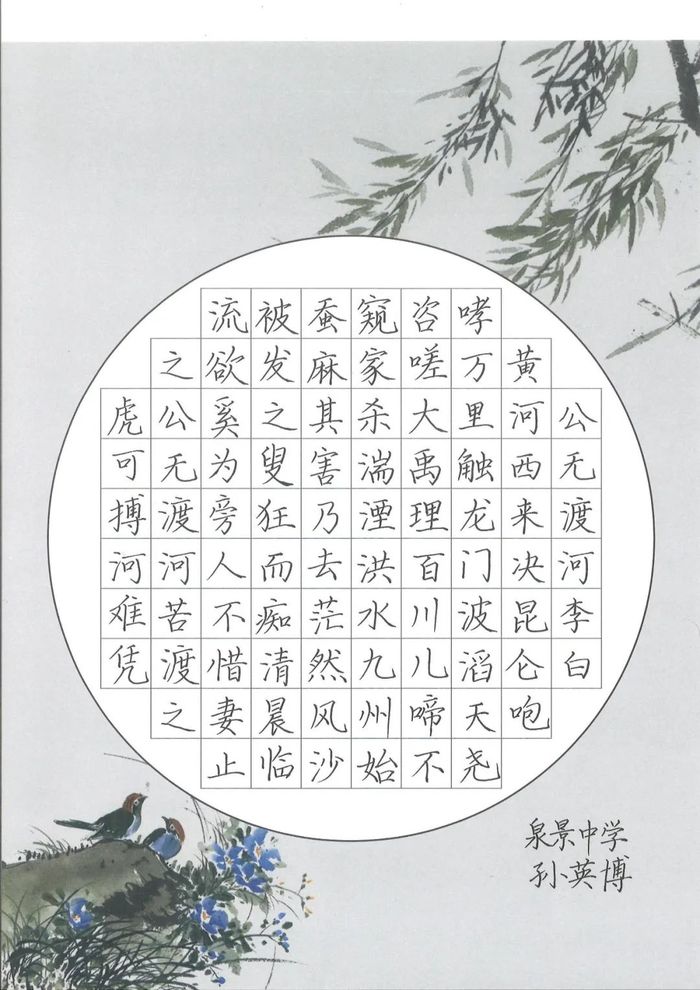 公无渡河李白
黄河西来决昆仑咆
哮万里触龙门波滔天尧
咨嗟大禹理百川儿啼不
窥家杀湍湮洪水九州始
蚕麻其害乃去茫然风沙
被发之叟狂而痴清晨临
流欲奚为旁人不惜妻止
之公无渡河苦渡之
虎可搏河难凭
泉景中学
孙英博